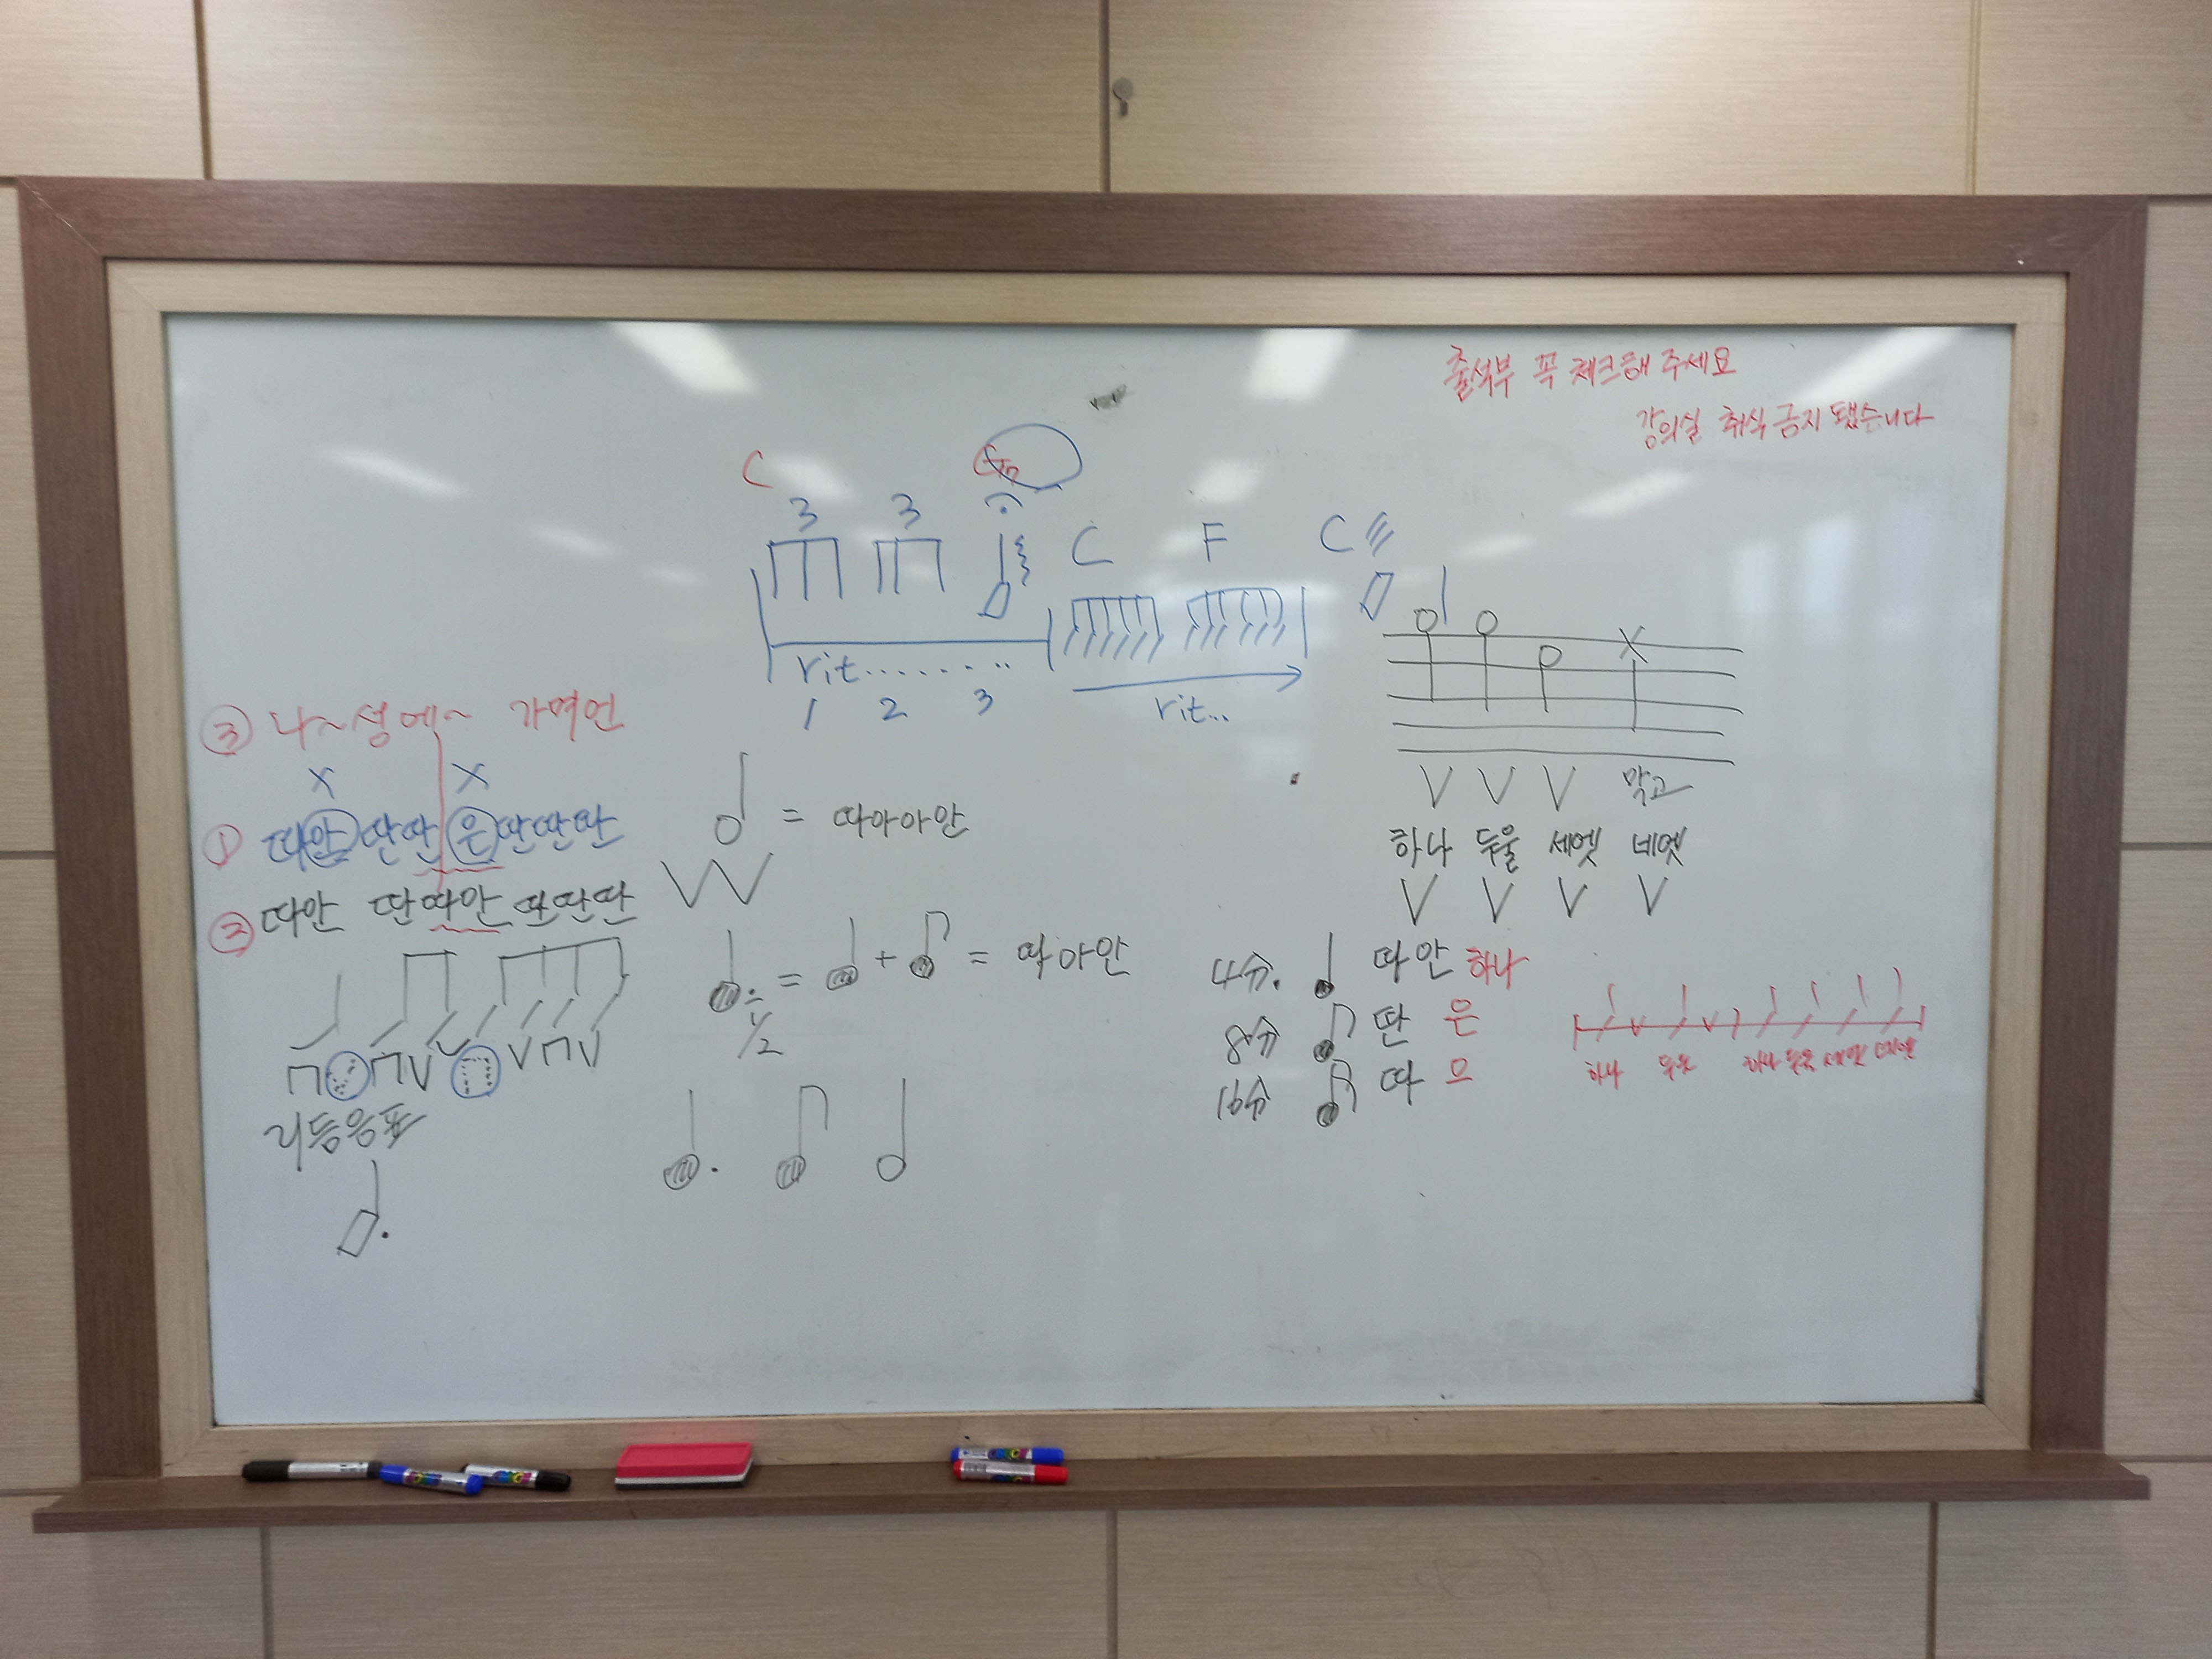 출석부 꼭 체크해 주세요
강의실 취식 금지 됐습니다
C G7
3 3
C F C
rit........
1 2 3
rit...
③ 나~성에~ 가면언
X X
① 따안딴딴은딴딴딴
② 따안 딴따안딴딴딴
리듬음표
= 따아아안
= + = 따아안
1/2
V V V 막고
하나 두울 세엣 네엣
V V V V
4분. 따안 하나
8분 딴 은
16분 따 으
하나 두울 하나 두울 세엣 네엣